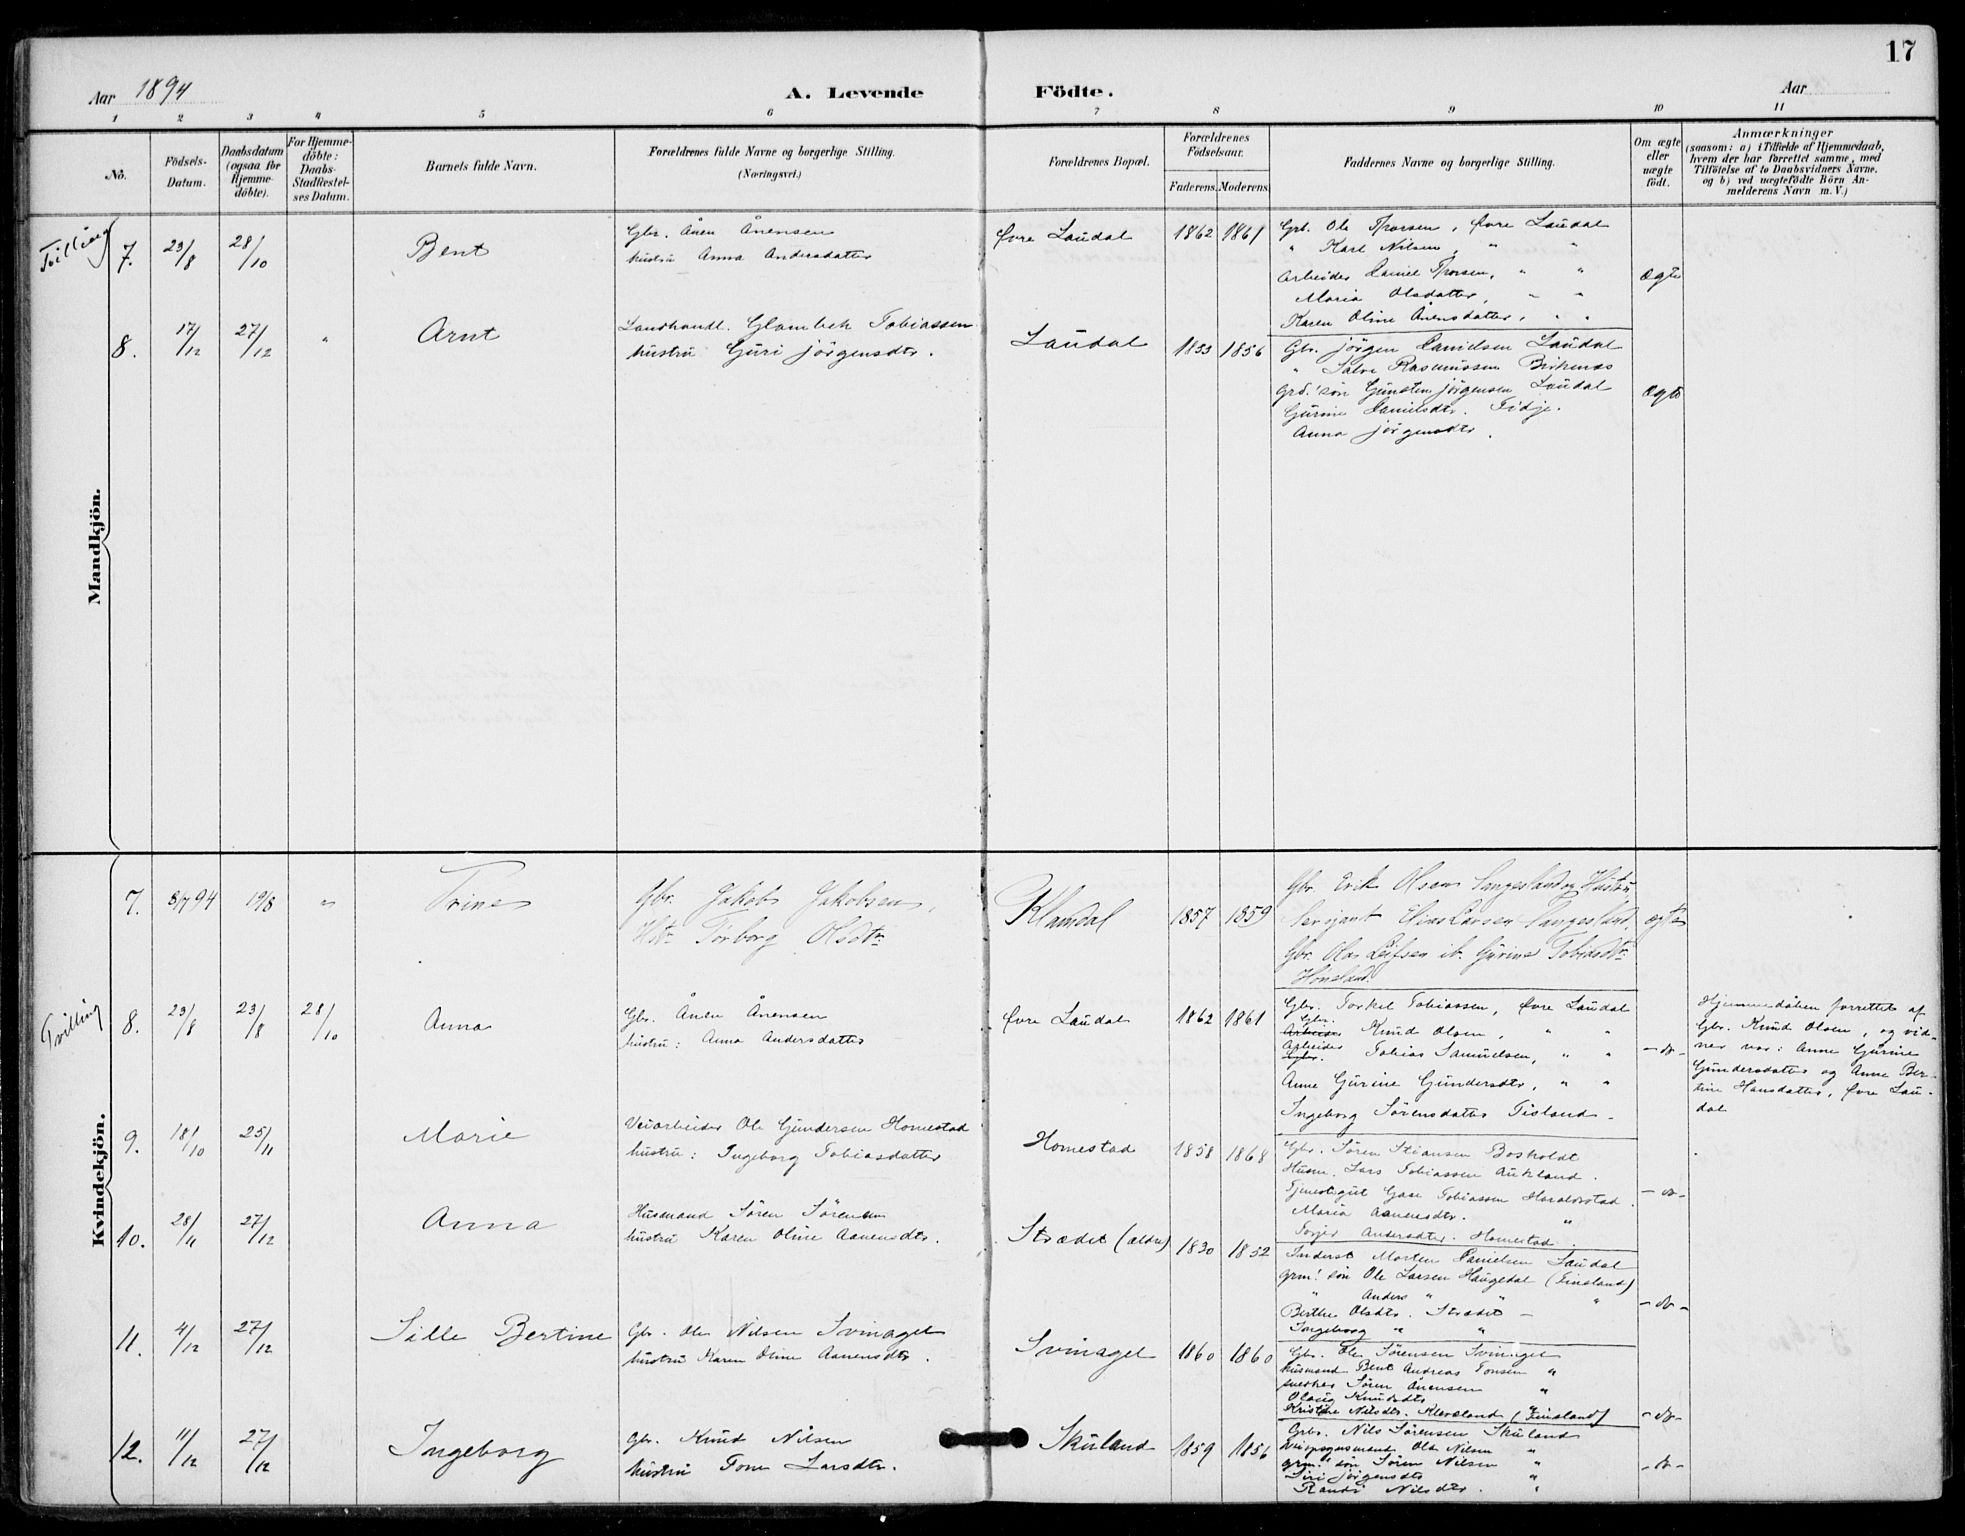 17
Aar 1894 A. Levende Födte. Aar
1 2 3 4 5 6 7 8 9 10 11
No.
Födsels-Datum.
Daabsdatum (ogsaa for Hjemme-döbte).
For Hjemme-döbte: Daabs-Stadfæstel-ses Datum.
Barnets fulde Navn.
Forældrenes fulde Navne og borgerlige Stilling.
(Næringsvei.)
Forældrenes Bopæl.
Forældrenes Födselsaar.
Faderens. Moderens.
Faddernes Navne og borgerlige Stilling.
Om ægte eller uægte födt.
Anmærkninger
(saasom: a) i Tilfælde af Hjemmedaab,
hvem der har forrettet samme, med
Tilföielse af to Daabsvidners Navne.
og b) ved uægtefödte Börn An-
melderens Navn m. V.)
Mandkjön.
Tvilling 7. 23/8 28/10 Bent
Gbr. Ånen Ånensen
hustru Anna Andersdatter
Øvre Laudal 1862 1861
Grb. Ole Thorsen, Øvre Laudal
" Karl Nilsen, " "
Arbeider Daniel Thorsen, " "
Maria Olsdatter, " "
Karen Oline Ånensdatter, " "
Ægte
8. 17/12 27/12 " Arnt
Landhandl. Glambek Tobiassen
hustru Guri Jörgensdtr.
Laudal 1853 1856
Gbr. Jörgen Danielsen Laudal
" Salve Rasmussen Birkenes
Grd. sön Gunsten Jörgensen Laudal
Gurine Danielsdtr. Fidje.
Anna Jörgensdtr.
Ægte
Kvindekjön.
7. 8/7 94 19/8 " Trine
Gbr. Jakob Jakobsen,
Hstr Torborg Olsdtr
Klamdal 1857 1859
Gbr. Erik Olsen Langeland og Hustru
Serjant Elias Larsen
Gbr. Olas Leifsen ib. Gurine Tobiasdtr
Honeland.
ægte
Tvilling 8. 23/8 23/8 28/10 Anna
Gbr. Ånen Ånensen
hustru: Anna Andersdatter
Øvre Laudal 1862 1861
Gbr. Torkel Tobiassen, Øvre Laudal
Gbr.
Arbeider Knud Olsen, " "
Arbeider
Gbr. Tobias Samuelsen, " "
Anne Gurine Gundersdtr, " "
Ingeborg Sörensdatter Tisland.
- do -
Hjemmedåben forrettet af
Gbr. Knud Olsen, og vid-
ner var: Anne Gurine
Gundersdatter og Anne Ber-
tine Hansdatter, Øvre Lau-
dal
9. 18/10 25/11 Marie
Veiarbeider Ole Gundersen Homestad
hustru: Ingeborg Tobiasdatter
Homestad 1858 1868
Gbr. Sören Stiansen Bosholdt
Husm. Lars Tobiassen Aukland.
Tjenestegut Gase Tobiassen Haraldstad
Maria Aanensdtr. "
Torjer Andersdtr. Homestad.
- do -
10. 28/11 27/12 Anna
Husmand Sören Sörensen
hustru Karen Oline Aanensdtr.
Strædet (ældre) 1830 1852
Inderst Morten Danielsen Laudal
grm! sön Ole Larsen Haugedal (Finsland)
" Anders " " "
Berthe Olsdtr. Strædet
Ingeborg " "
- do -
11. 4/12 27/12 Sille Bertine
Gbr. Ole Nilsen Svinaget
hustru Karen Oline Aanensdtr.
Svinaget 1860 1860
Gbr. Ole Sörensen Svinaget
husmand Bent Andreas Tonsen "
snedker Sören Ånensen "
Olaug Knudsdtr "
Kristine Nilsdtr. Kleveland (Finsland)
- do -
12. 11/12 27/12 Ingeborg
Gbr. Knud Nilsen
hustru Tone Larsdtr.
Skuland 1859 1856
Grbr. Nils Sörensen Skuland
Ole Nilsen "
grm! sön Sören Nilsen "
Siri Jörgensdtr "
Randi Nilsdtr. "
- do -